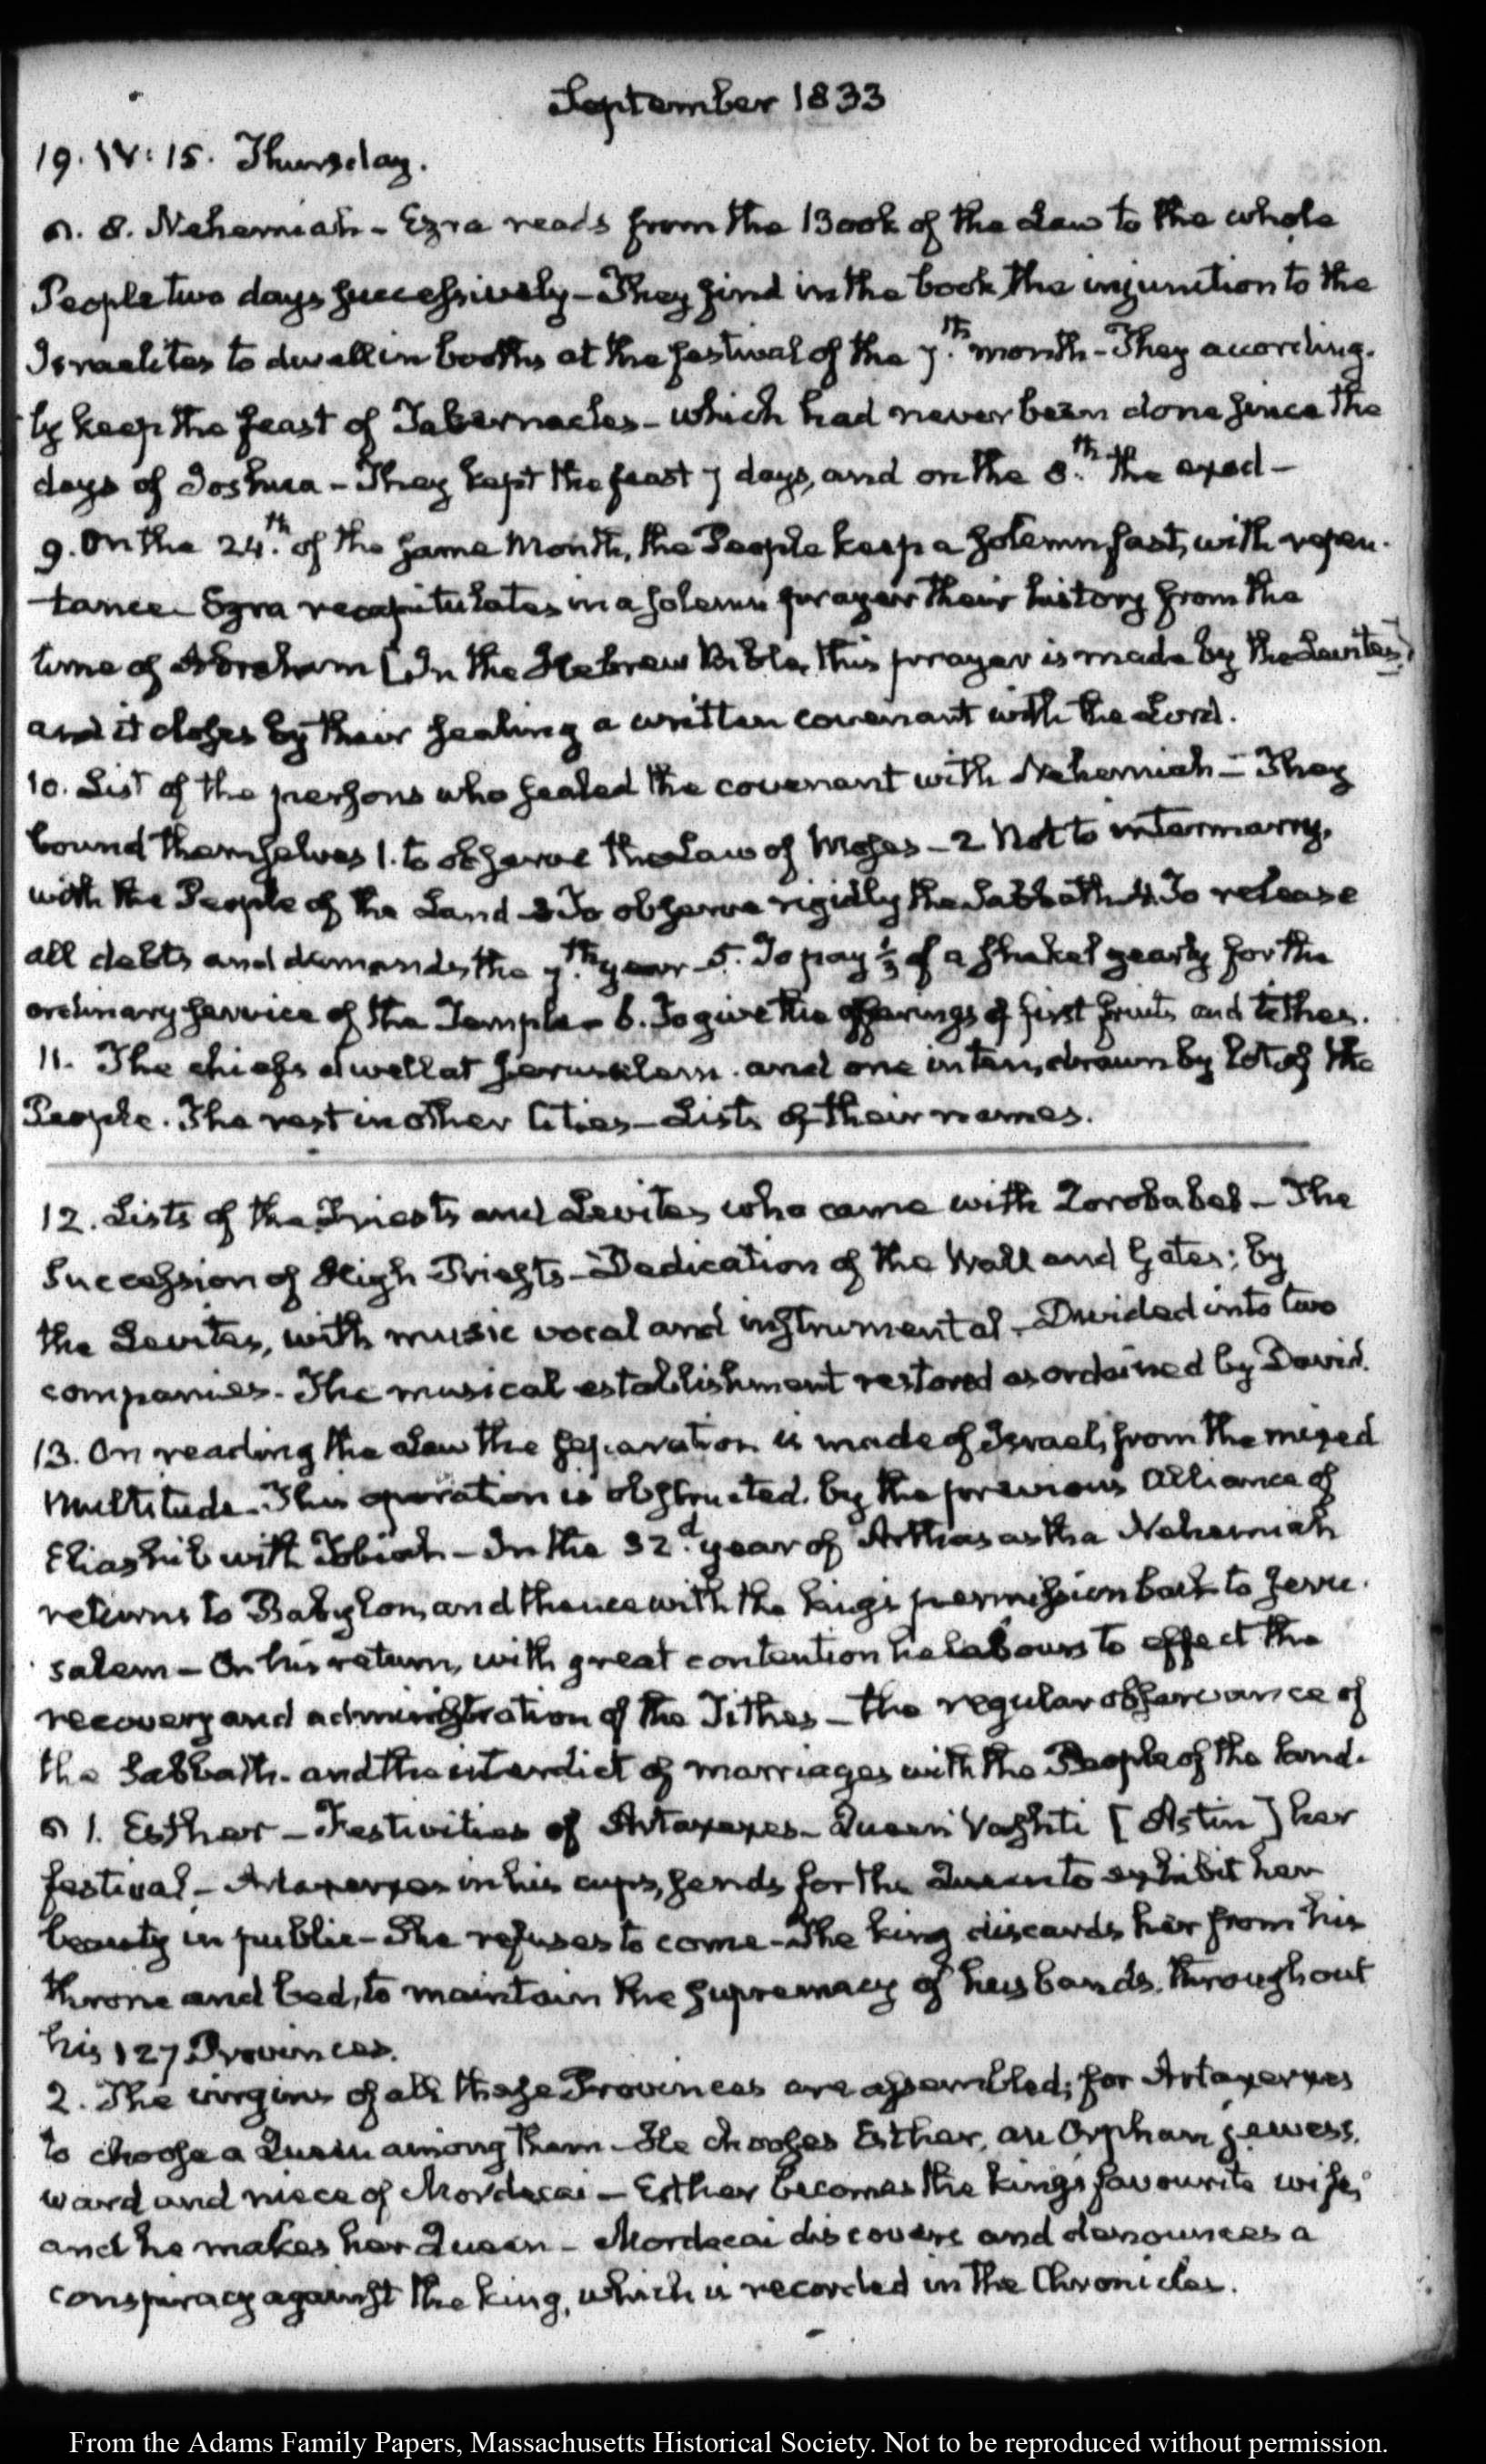 September 1833
19. IV: 15. Thursday.
8. Nehemiah - Ezra reads from the Book of the Law to the whole
People two days successively - They find in the book, the injunction to the
Israelites to dwell in booths at the festival of the 7.th month - They according-
ly keep the feast of Tabernacles - which had never been done since the
days of Joshua - They kept the feast 7 days, and on the 8.th the exod -
9. On the 24.th of the same Month, the People keep a solemn fast, with repen-
tance - Ezra recapitulates in a solemn prayer their history from the
time of Abraham [In the Hebrew Bible, this prayer is made by the Levites]
and it closes by their sealing a written covenant with the Lord.
10. List of the persons who sealed the covenant with Nehemiah - They
bound themselves 1. to observe the Law of Moses - 2 Not to intermarry,
with the People of the Land - 3 To observe rigidly the Sabbath 4. To release
all debts and demands, the 7.th year - 5. To pay 1/3 of a shekel yearly for the
ordinary service of the Temple - 6. To give the offerings of first fruits and tithes.
11. The chiefs dwell at Jerusalem. and one in ten, drawn by lot of the
People. The rest in other Cities - Lists of their names.
12. Lists of the Priests and Levites who came with Zorobabel - The
Succession of High Priests - Dedication of the Wall and Gates; by
the Levites, with music vocal and instrumental - Divided into two
companies - The musical establishment restored as ordained by David.
13. On reading the Law the separation is made of Israel, from the mixed
Multitude - This operation is obstructed by the previous Alliance of
Eliashib with Tobiah - In the 32.d year of Arthasastha Nehemiah
returns to Babylon, and thence with the kings permission back to Jeru-
salem - On his return, with great contention he labours to effect the
recovery and administration of the Tithes - the regular observance of
the Sabbath - and the interdict of marriages with the People of the land.
1. Esther - Festivities of Artaxerxes - Queen Vashti [Astin] her
festival - Artaxerxes in his cups, sends for the Queen to exhibit her
beauty in public - She refuses to come - The king discards her from his
throne and bed, to maintain the supremacy of husbands, throughout
his 127 Provinces.
2. The virgins of all these Provinces are assembled; for Artaxerxes
to choose a Queen among them - He chooses Esther, an Orphan jewess,
ward and niece of Mordecai - Esther becomes the king's favourite wife,
and he makes her Queen - Mordecai discovers and denounces a
conspiracy against the king, which is recorded in the Chronicles.
From the Adams Family Papers, Massachusetts Historical Society. Not to be reproduced without permission.